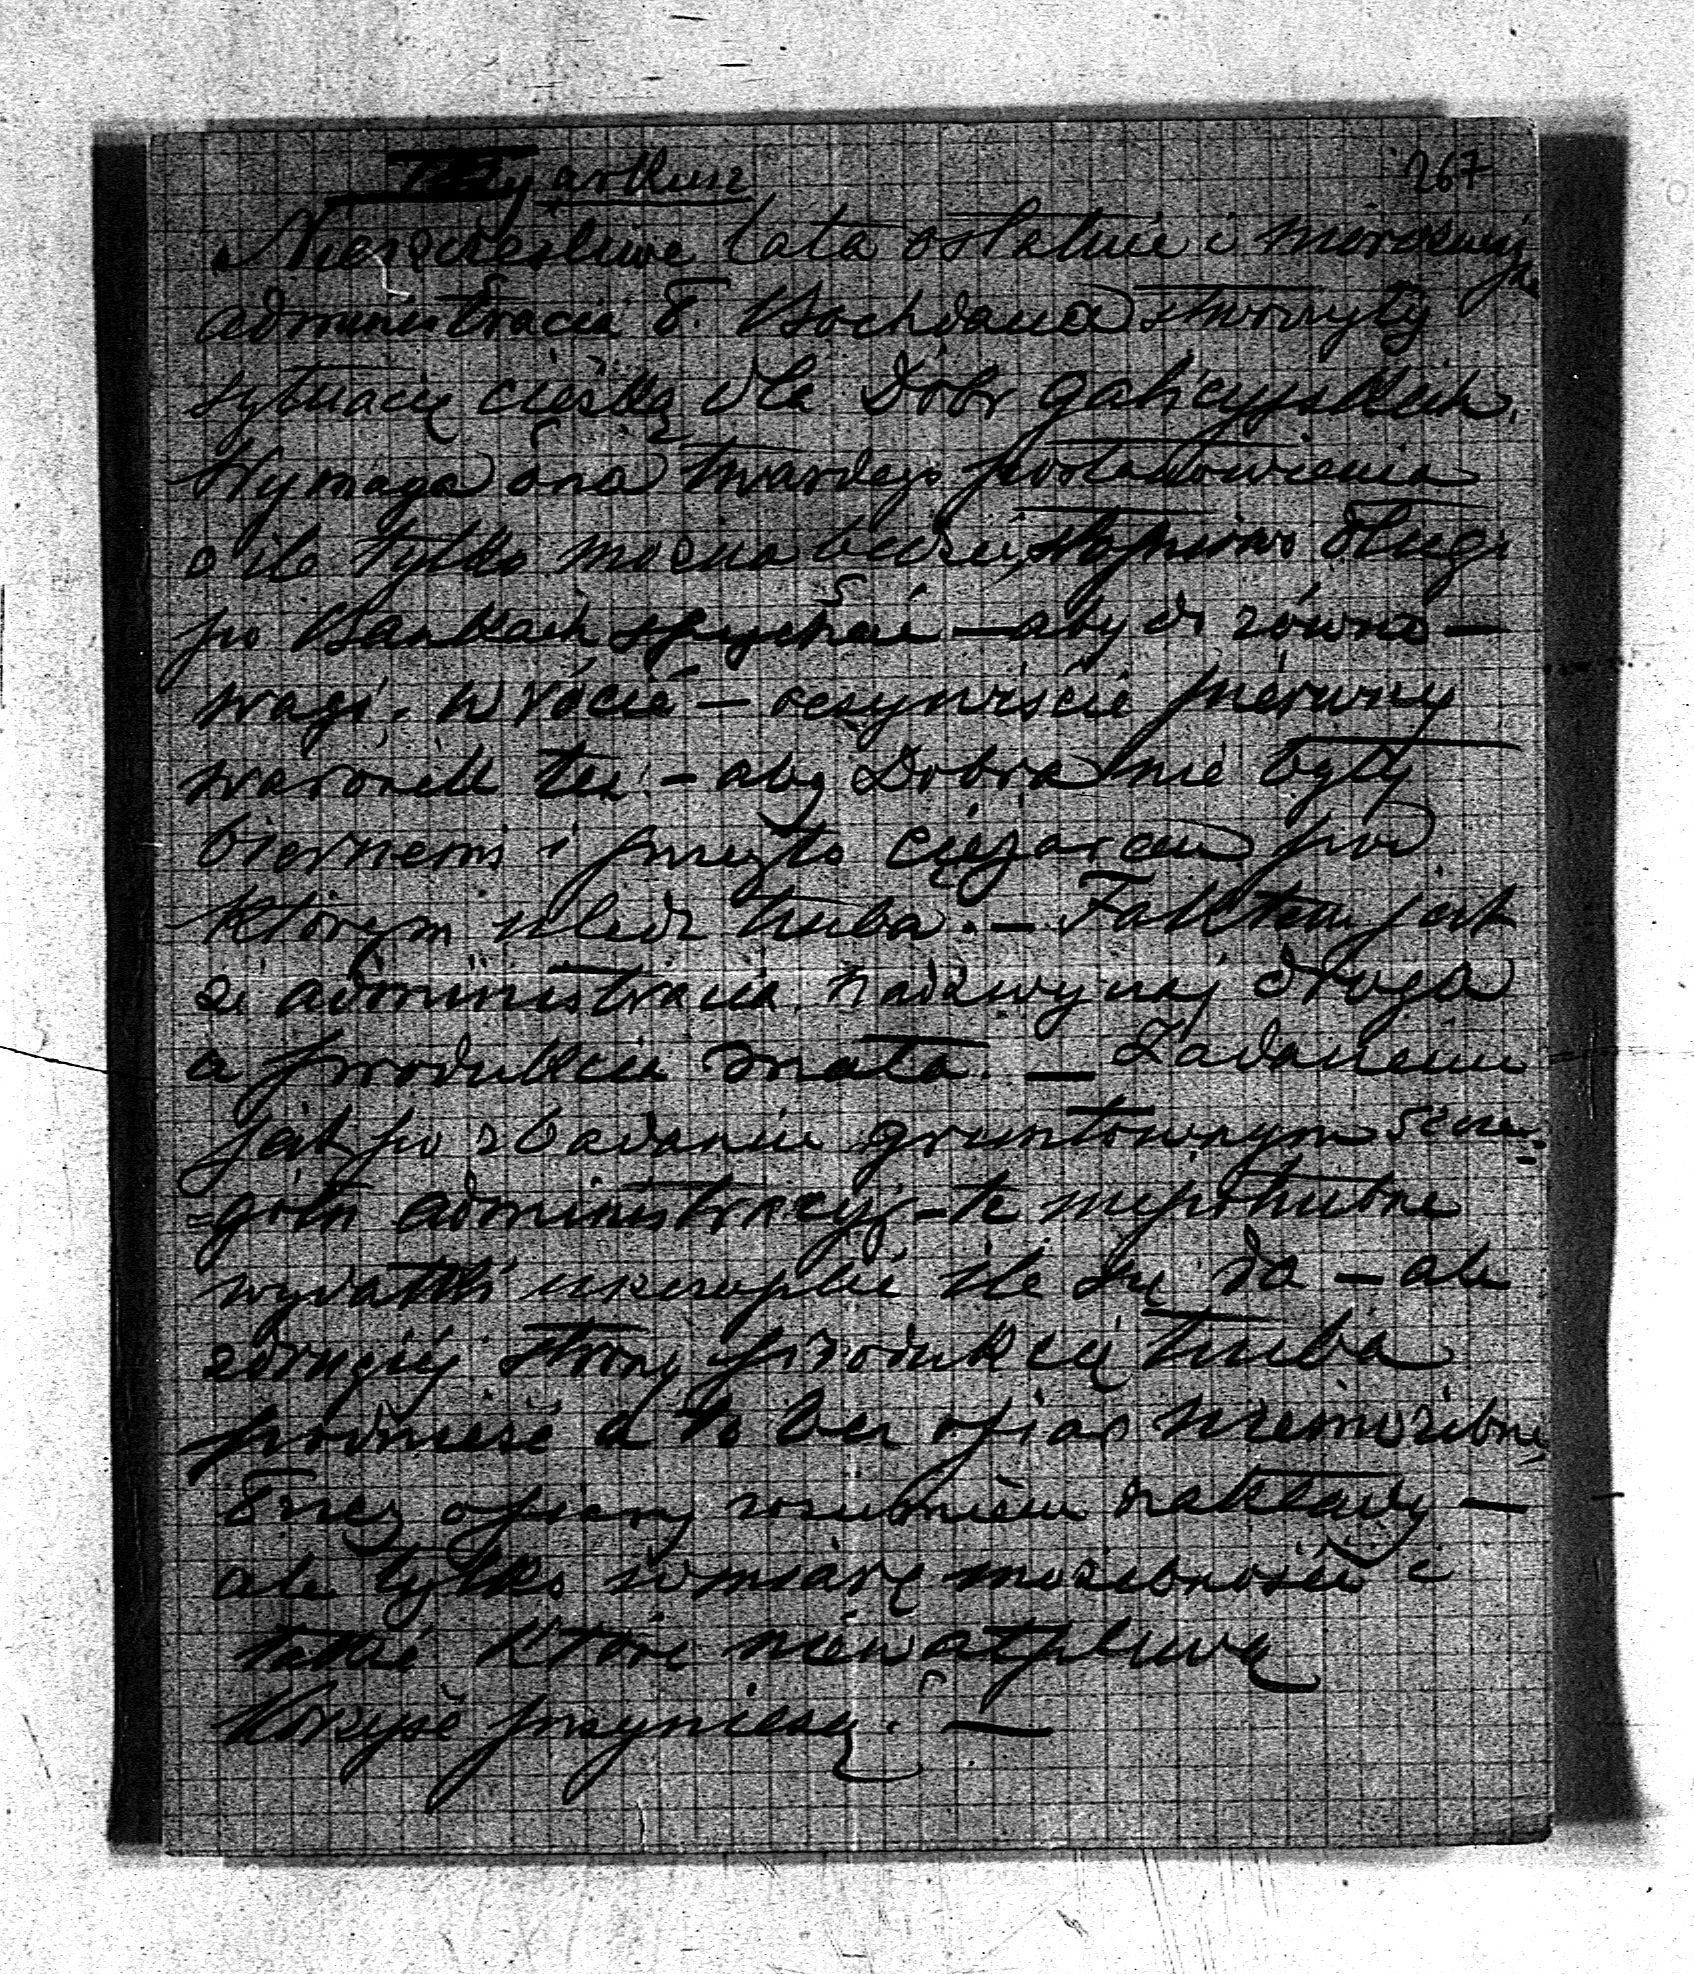 arkusz 267
Nieszczęśliwe lata ostatnie i
administracia Bochdana stworzyły
sytuacię cieżką dla Dóbr galicyjskich.
Wymaga ona twardego postanowienia
o ile tylko można być stopniowo długi
po Bankach spychać — aby do równo —
wagi wrócić — oczywiście pierwszy
warónek ten — aby Dobra nie były
biernemi i pruszto cięzarem pod
którym uledz truba. — Faktem jest
ze administracia nadzwyczaj droga
a produkcia mała. — Zadaniem
jest po zbadaniu gruntownym szcze-
=gółu administracyj — te niepotrubne
wydatki uszczuplić ile się da — ale
zdrugiéj strony produkcię truba
podnieść a to bez ofiar niemożebnych
Przez ofiary rozumiem nakłady —
ale tylko wmiarę możebności i
takie które niewątpliwą
korzyść przyniesą. —